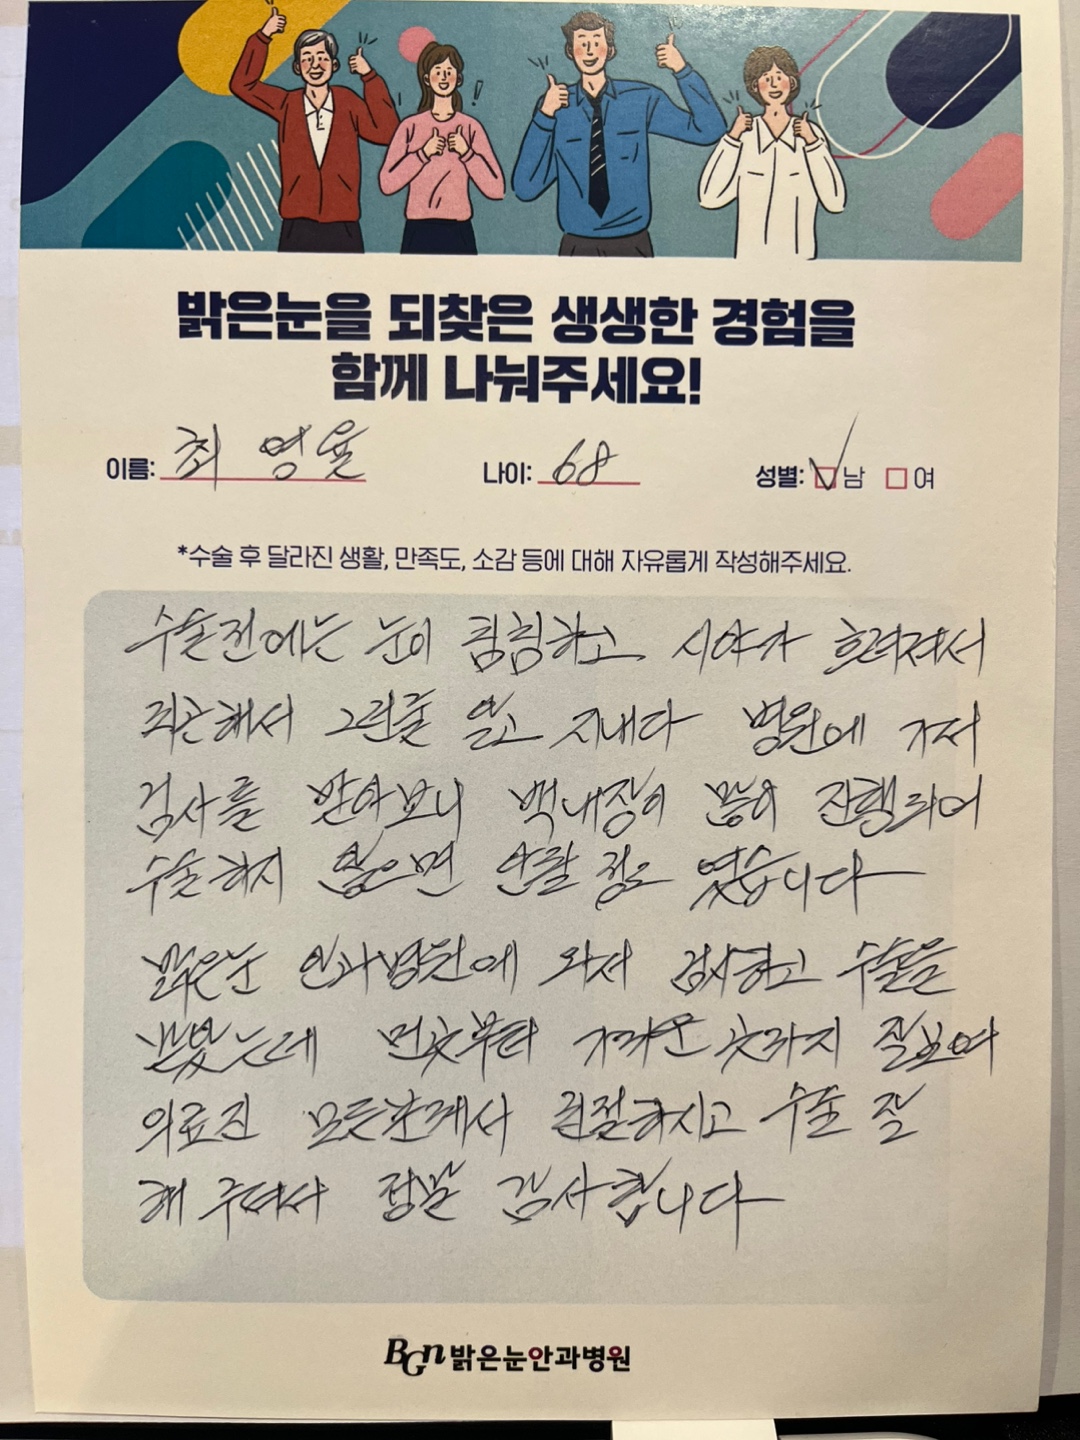 밝은눈을 되찾은 생생한 경험을
함께 나눠주세요!
이름: 최영 나이: 68 성별: ✓남 □여
*수술 후 달라진 생활, 만족도, 소감 등에 대해 자유롭게 작성해주세요.
수술전에는 눈이 침침하고 시야가 흐려져서
피곤해서 그런줄 알고 지내다 병원에 가서
검사를 받아보니 백내장이 많이 진행되어
수술하지 않으면 안될 정도 였습니다
밝은눈 안과병원에 와서 검사하고 수술을
받았는데 먼곳부터 가까운 곳까지 잘보여
의료진 모든분께서 친절하시고 수술 잘
해 주셔서 정말 감사합니다
BGn 밝은눈안과병원